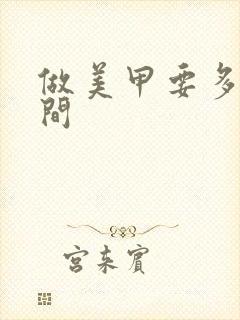 做美甲要多
間
宫来賓